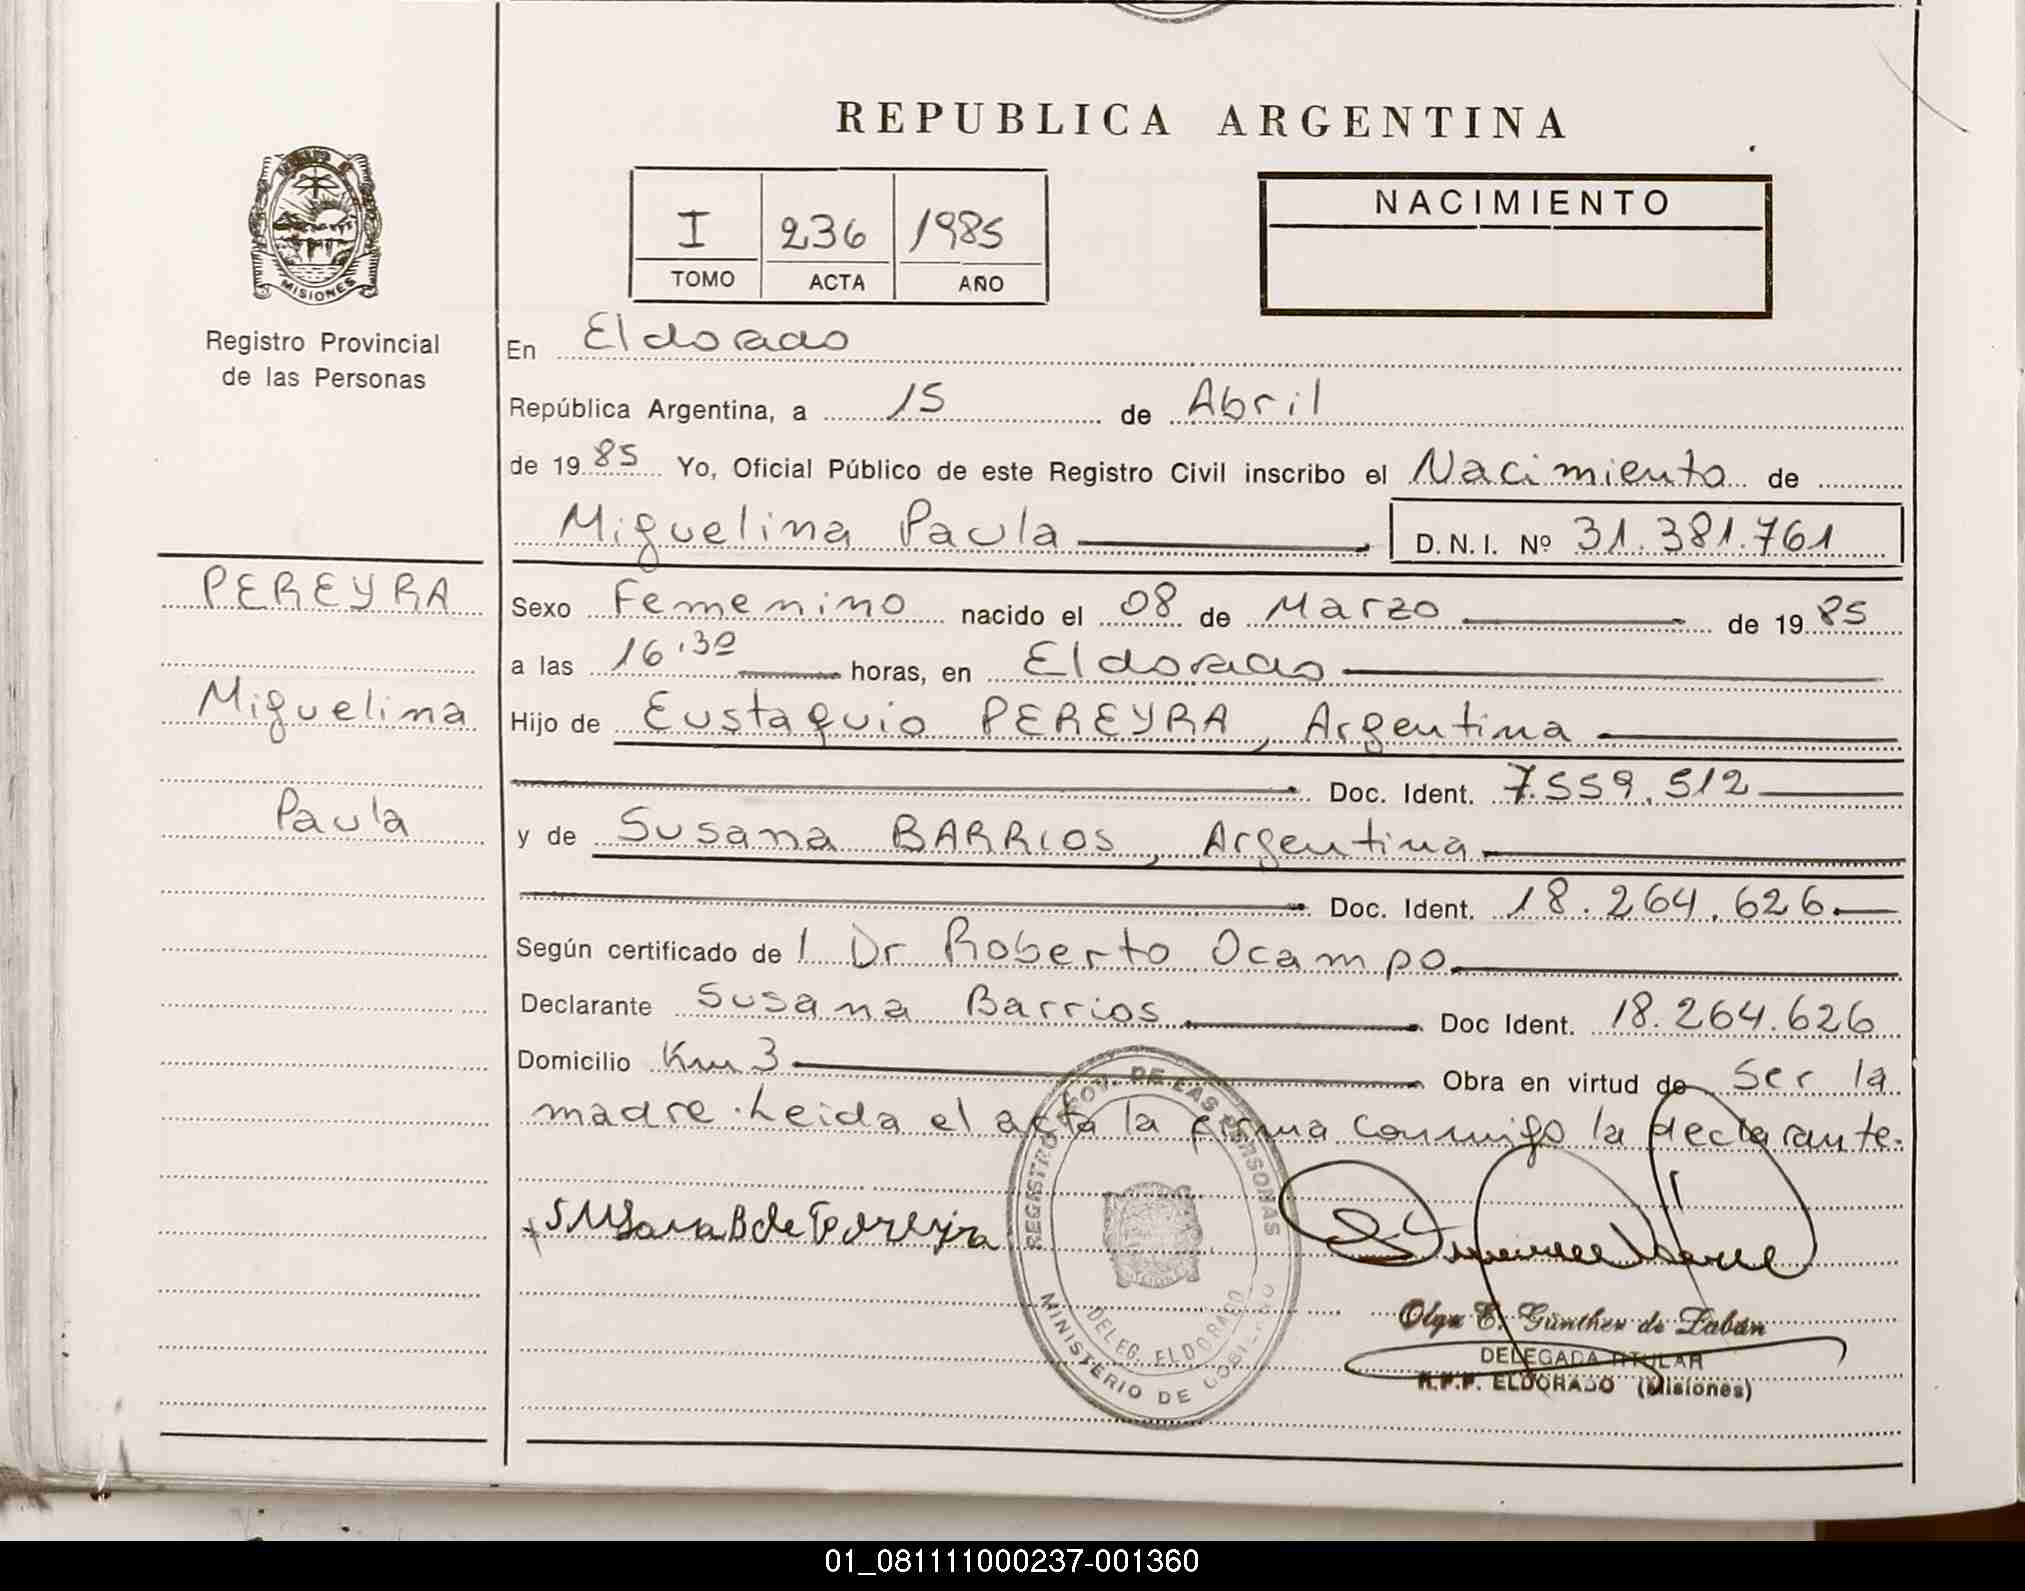 REPUBLICA ARGENTINA
MISIONES
Registro Provincial
de las Personas
I 236 1985
TOMO ACTA AÑO
NACIMIENTO
En Eldorado
República Argentina, a 15 de Abril
de 1985 Yo, Oficial Público de este Registro Civil inscribo el Nacimiento de
Miguelina Paula D.N.I. Nº 31.381.761
PEREYRA
Miguelina
Paula
Sexo Femenino nacido el 08 de Marzo de 1985
a las 16.30 horas, en Eldorado
Hijo de Eustaquio PEREYRA, Argentina
Doc. Ident. 7.559.512
y de Susana BARRIOS, Argentina
Doc. Ident. 18.264.626
Según certificado de l Dr Roberto Ocampo
Declarante Susana Barrios Doc Ident. 18.264.626
Domicilio Km 3 Obra en virtud de Ser la
madre. Leida el acta la firma conmigo la declarante.
Susana B de Pereyra
REGISTRO PROV. DE LAS PERSONAS
DELEG. ELDORADO
MINISTERIO DE GOBIERNO
Olga E. Günther de Zabán
DELEGADA TITULAR
R.P.P. ELDORADO (Misiones)
01_081111000237-001360